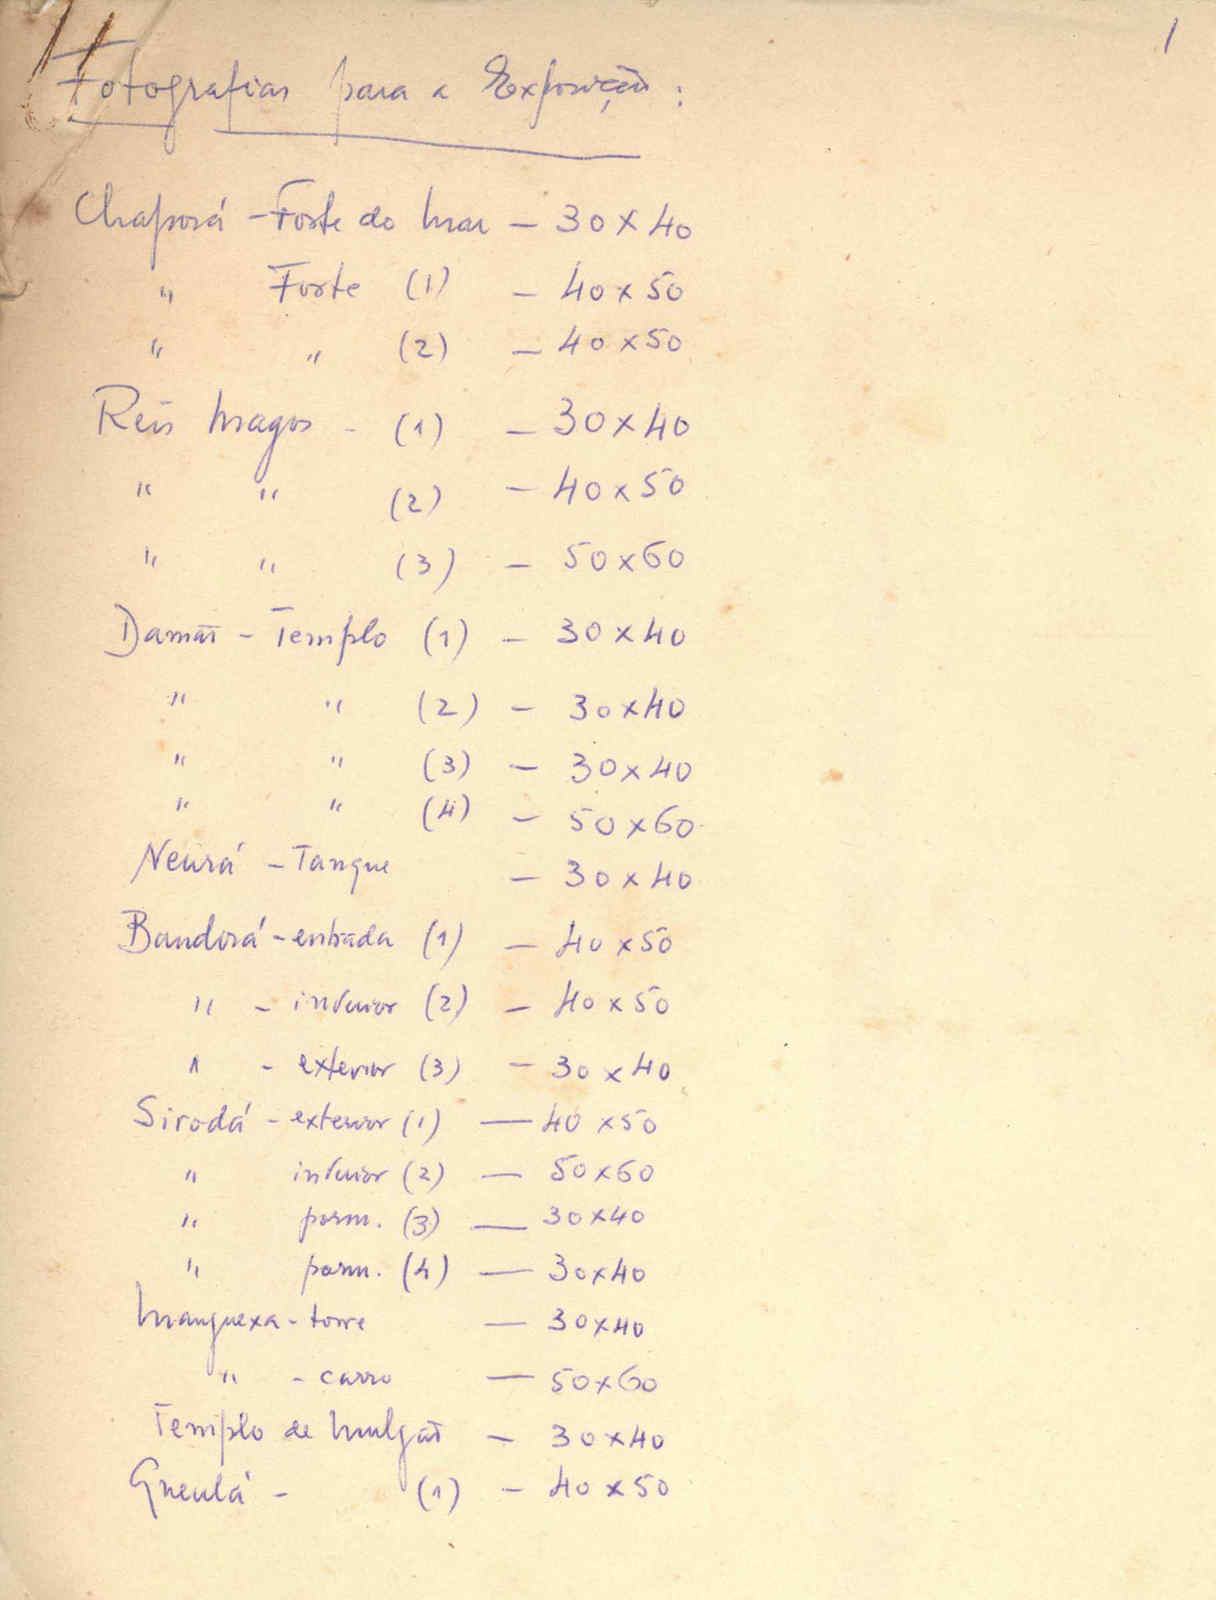 1
Fotografias para a Exposição :
Chaporá - Forte do Mar - 30 x 40
" Forte (1) - 40 x 50
" " (2) - 40 x 50
Reis Magos - (1) - 30 x 40
" " (2) - 40 x 50
" " (3) - 50 x 60
Damão - Templo (1) - 30 x 40
" " (2) - 30 x 40
" " (3) - 30 x 40
" " (4) - 50 x 60
Neurá - Tanque - 30 x 40
Bandorá - entrada (1) - 40 x 50
" - interior (2) - 40 x 50
" - exterior (3) - 30 x 40
Sirodá - exterior (1) — 40 x 50
" interior (2) — 50 x 60
" porm. (3) — 30 x 40
" porm. (4) — 30 x 40
Manguexa - torre — 30 x 40
" - carro — 50 x 60
Templo de - 30 x 40
Queulá - (1) - 40 x 50